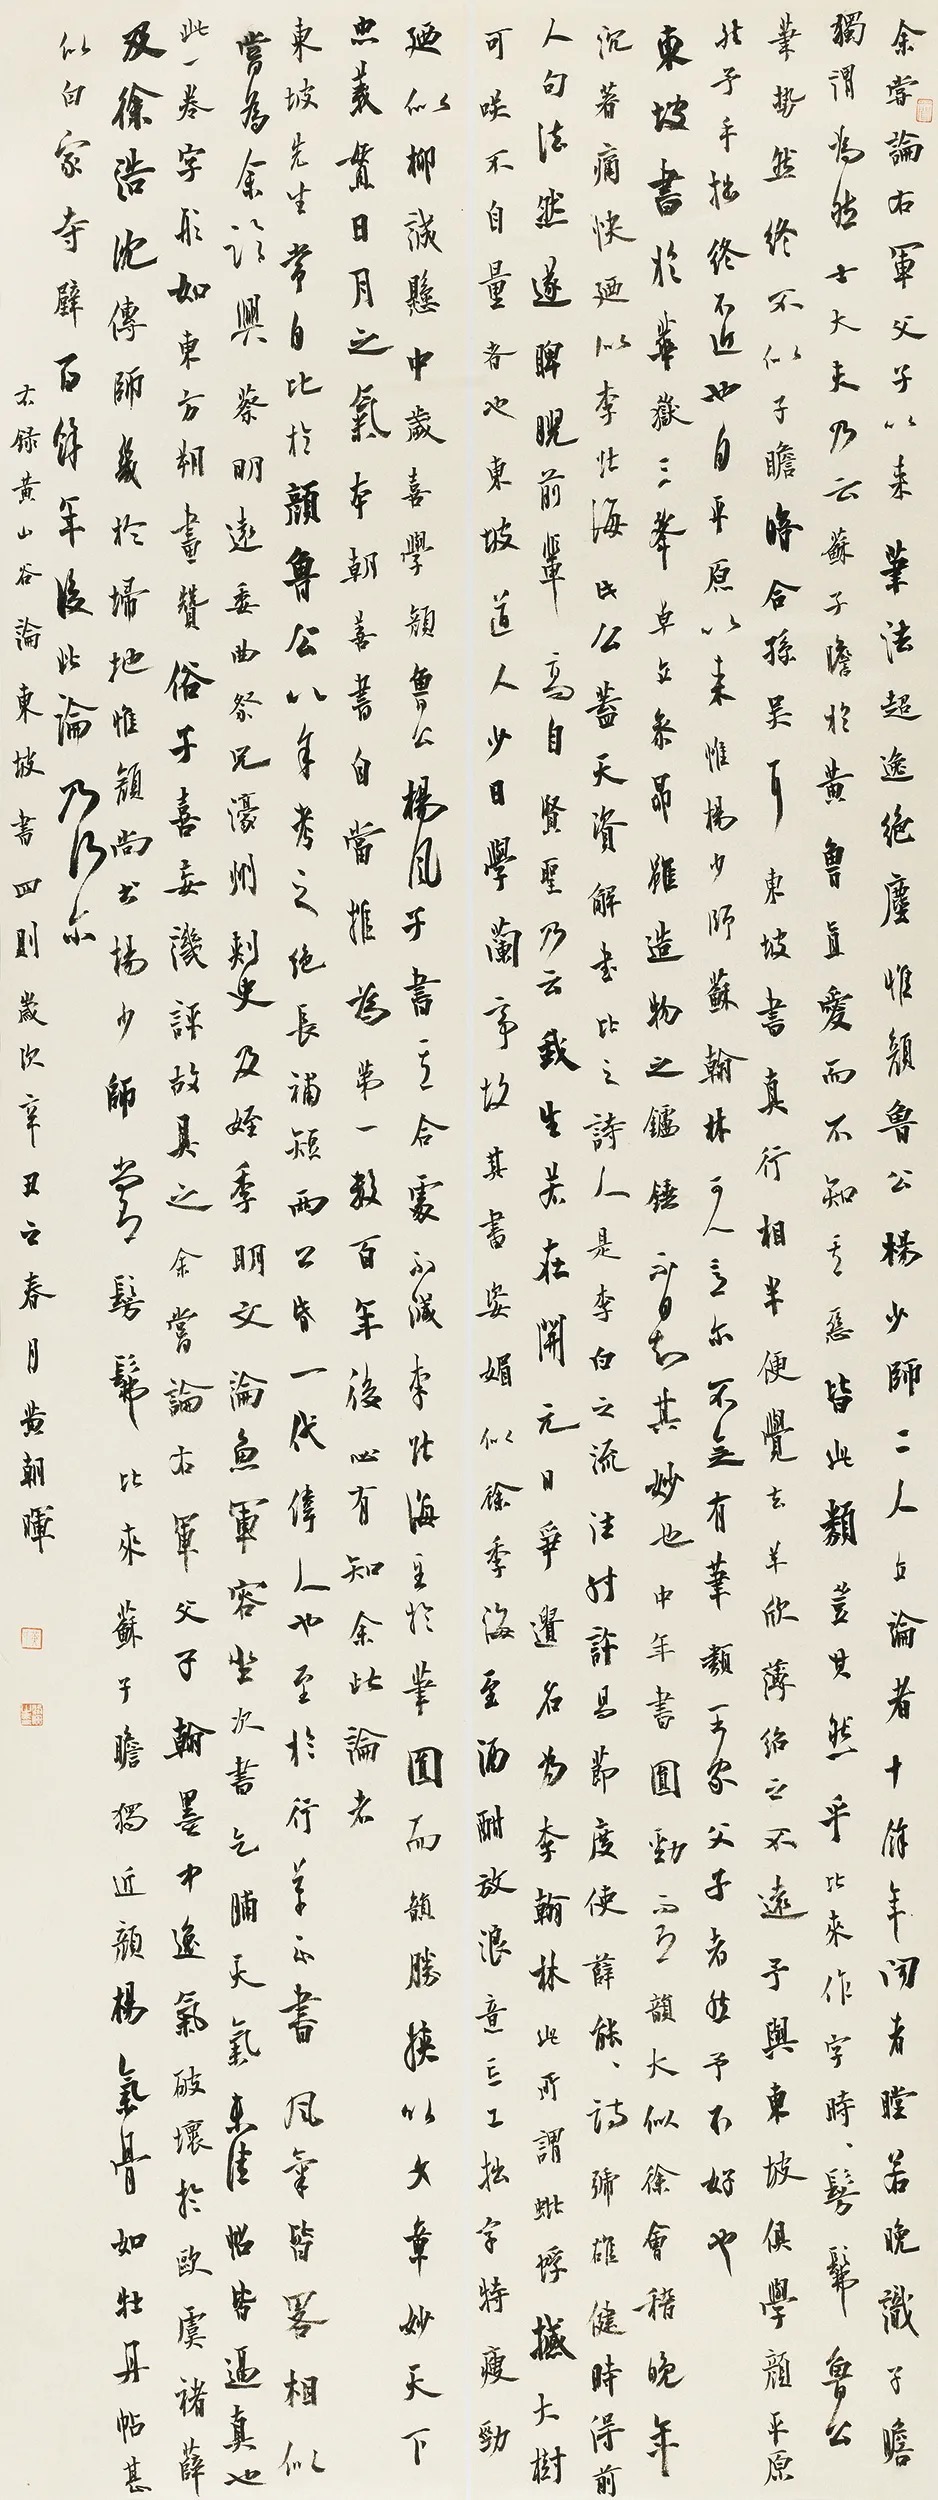 余嘗論右軍父子以來筆法超逸絕塵惟顏魯公楊少師二人立論者十餘年聞者瞠若晚識子瞻
獨謂為然士大夫乃云蘇子瞻於黃魯直愛而不知其惡皆此類豈其然乎比來作字時時髣髴魯公
筆勢然終不似子瞻暗合孫吳耳東坡書真行相半便覺去羊欣薄紹之不遠予與東坡俱學顏平原
然予手拙終不近也自平原以來惟楊少師蘇翰林可人意爾不無有筆類王家父子者然予不好也
東坡書於華嶽三峯卓立參昴雖造物之鑪錘不自知其妙也中年書圓勁而有韻大似徐會稽晚年
沉著痛快乃似李北海此公蓋天資解書比之詩人是李白之流往時許昌節度使薛能能詩號雄健時得前
人句法然遂睥睨前輩高自賢聖乃云我生若在開元日爭遣名為李翰林此所謂蚍蜉撼大樹
可咲不自量者也東坡道人少日學蘭亭故其書姿媚似徐季海至酒酣放浪意忘工拙字特瘦勁
廼似柳誠懸中歲喜學顏魯公楊風子書其合處不減李北海至於筆圓而韻勝挾以文章妙天下
忠義貫日月之氣本朝善書自當推為第一數百年後必有知余此論者
東坡先生常自比於顏魯公以余考之絕長補短兩公皆一代偉人也至於行草正書風氣皆略相似
嘗為余臨與蔡明遠委曲祭兄濠州刺史及姪季明文論魚軍容坐次書乞脯天氣未佳帖皆逼真也
此一卷字形如東方朔畫贊俗子喜妄譏評故具之余嘗論右軍父子翰墨中逸氣破壞於歐虞褚薛
及徐浩沈傳師幾於掃地惟顏尚書楊少師尚有髣髴比來蘇子瞻獨近顏楊氣骨如牡丹帖甚
似白家寺壁百餘年後此論乃行爾
右錄黃山谷論東坡書四則歲次辛丑立春月黃朝暉